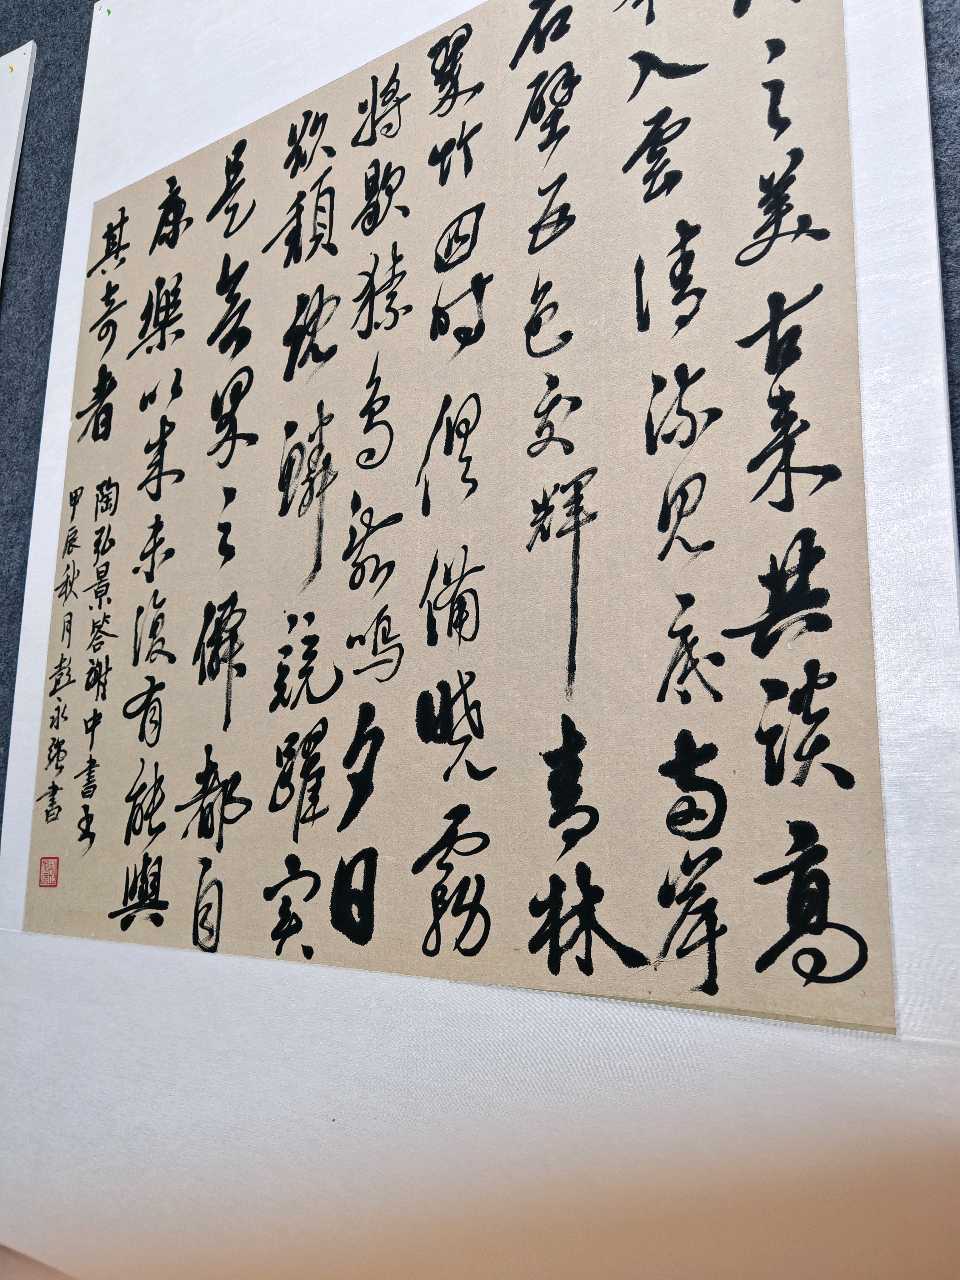 之美古来共談高
入雲清流見底兩岸
石壁五色交輝青林
翠竹四時俱備曉霧
將歇猿鳥亂鳴夕日
欲頹沈鱗競躍實
是欲界之僊都自
康樂以来未復有能與
其奇者
陶弘景答謝中書
甲辰秋月彭永强書